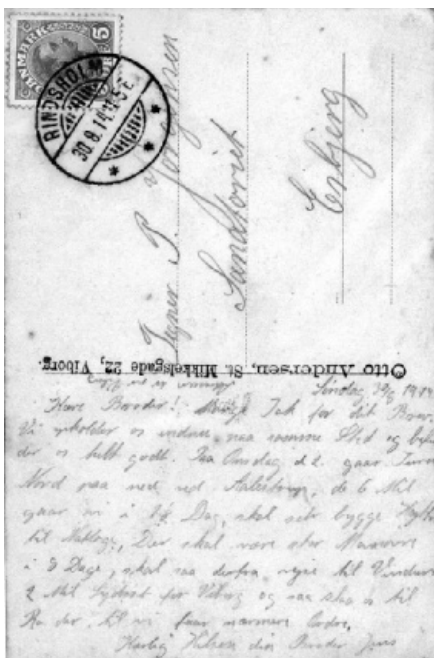 DANMARK 5
RINDSHOLM
30.8.14.
P. Jørgensen
Sundtoriet
Esbjerg
Otto Andersen, St. Mikkelsgade 22, Viborg.
Søndag 30/8 1914
Kære Broder! Tak for dit Brev,
Vi opholder os endnu paa samme Sted og befin
der os helt godt. Paa Onsdag d. 2. gaar Turen
Nord paa ned ved Aalestrup, de 6 Mil
gaar vi i Dag, skal selv bygge Hytte
til Natlogi, Der skal være stor Manøvre
i 3 Dage, skal saa derfra til
2 Mil Sydøst for Viborg og saa skal vi til
Ro der til vi faar nærmere Ordre,
Kærlig Hilsen din Broder Jens